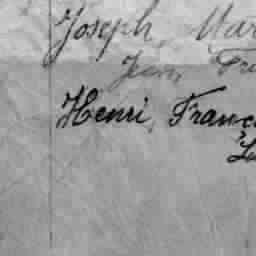 Joseph, Mar
Jean, Fra
Henri, Franc